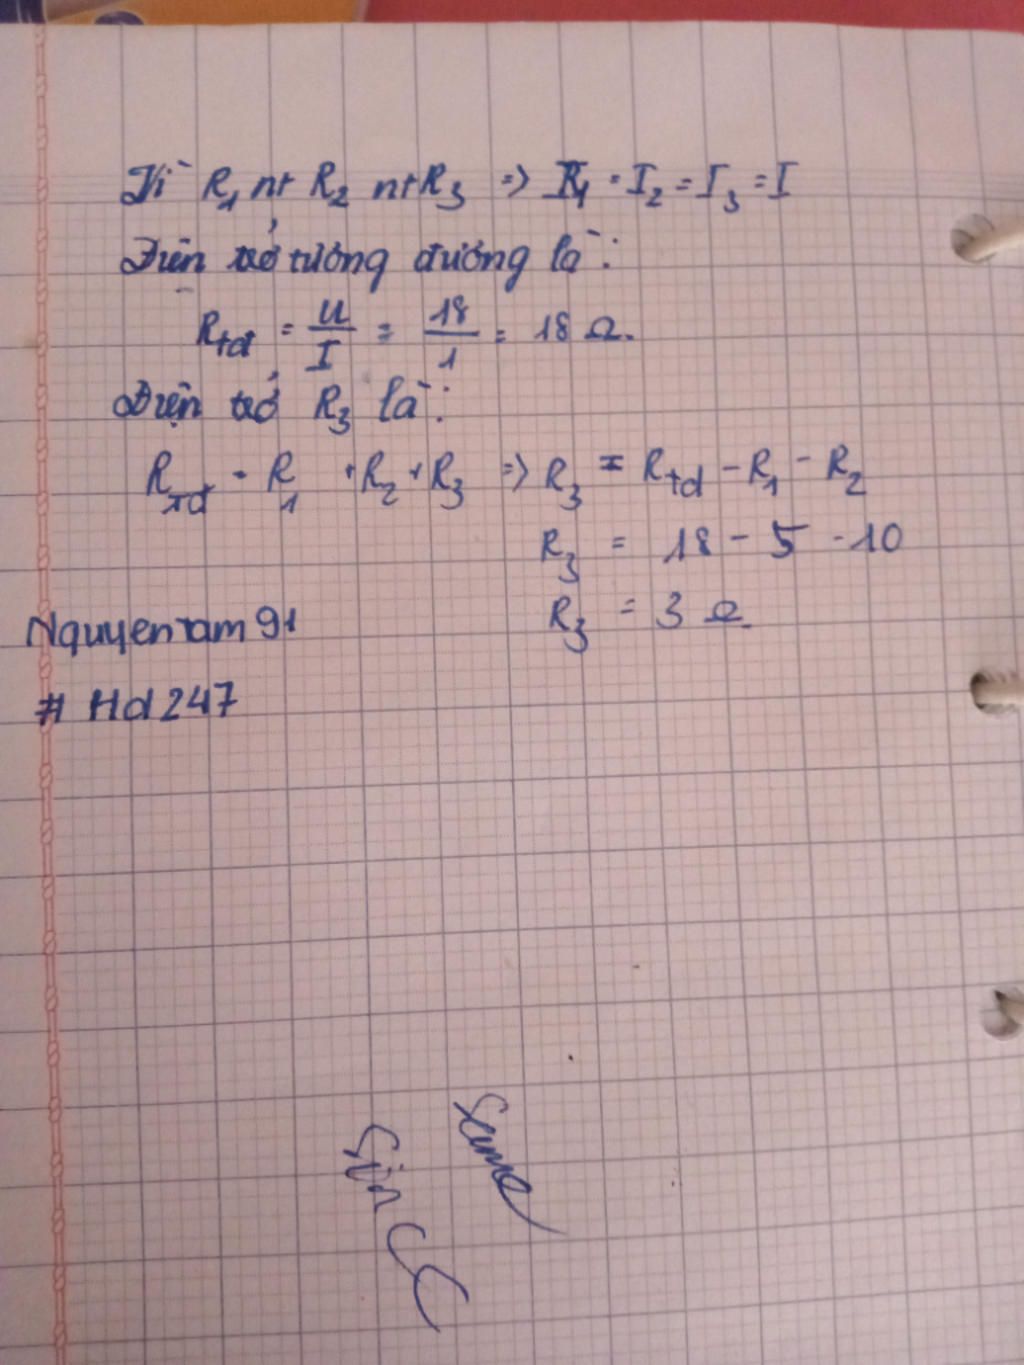 Vì R₁ nt R₂ nt R₃ => I₁ = I₂ = I₃ = I
Điện trở tương đương là:
Rtđ = U/I = 18/1 = 18 Ω.
Điện trở R₃ là:
Rtđ = R₁ + R₂ + R₃ => R₃ = Rtđ - R₁ - R₂
R₃ = 18 - 5 - 10
R₃ = 3 Ω.
Nguyentam91
# Hd247